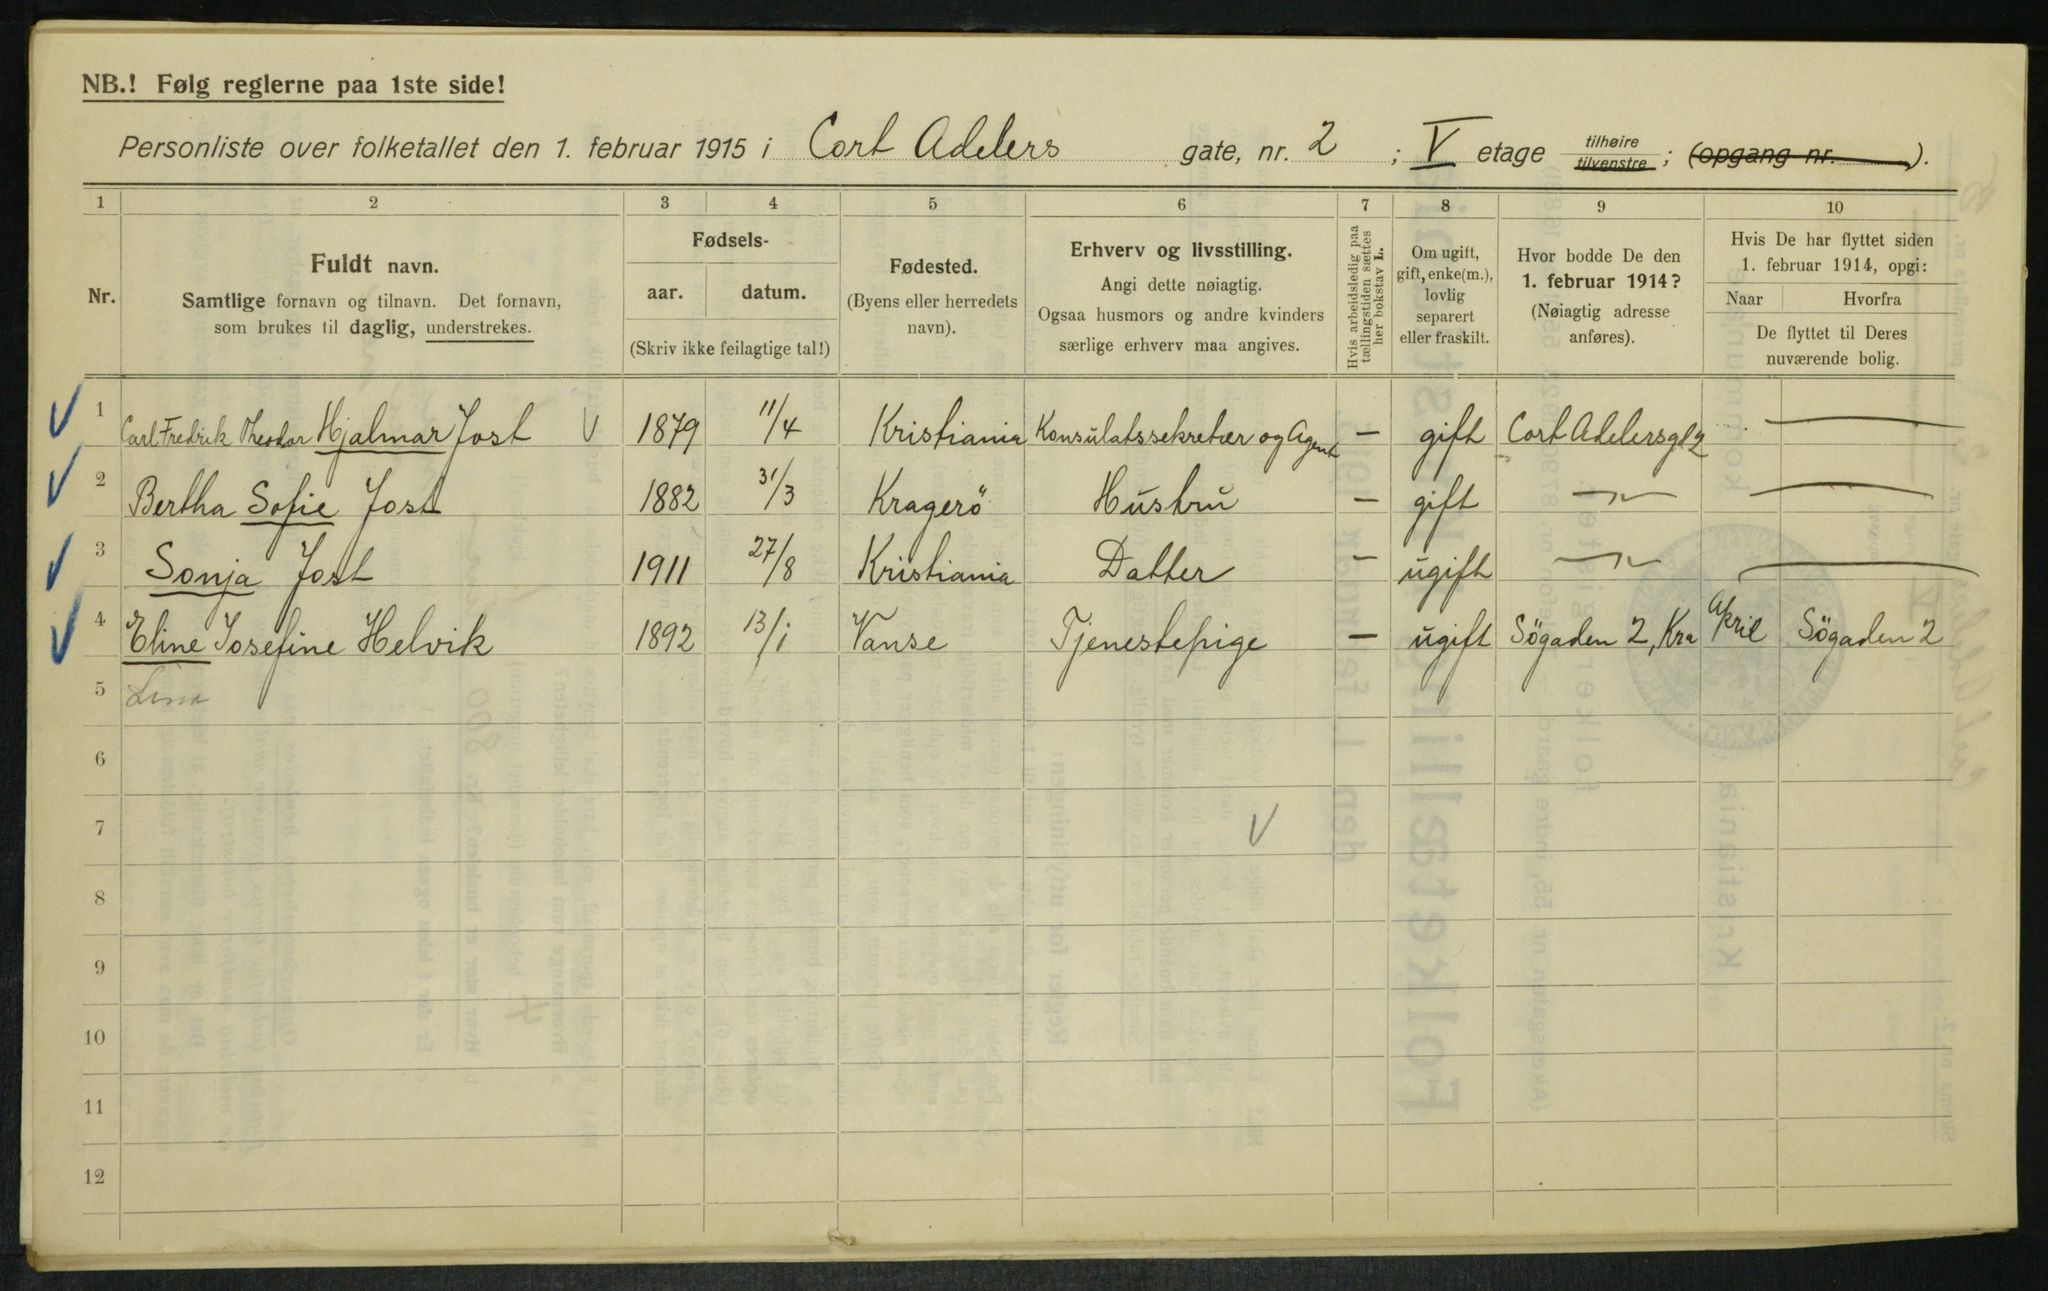 NB.! Følg reglerne paa 1ste side!
Personliste over folketallet den 1. februar 1915 i Cort Adelers gate, nr. 2 ; V etage tilhøire tilvenstre ; (opgang nr. ).
1 2 3 4 5 6 7 8 9 10
Nr.
Fuldt navn.
Samtlige fornavn og tilnavn. Det fornavn,
som brukes til daglig, understrekes.
Fødsels-
aar. datum.
(Skriv ikke feilagtige tal!)
Fødested.
(Byens eller herredets
navn).
Erhverv og livsstilling.
Angi dette nøiagtig.
Ogsaa husmors og andre kvinders
særlige erhverv maa angives.
Hvis arbeidsledig paa
tællingstiden sættes
her bokstav L.
Om ugift,
gift, enke(m.),
lovlig
separert
eller fraskilt.
Hvor bodde De den
1. februar 1914?
(Nøiagtig adresse
anføres).
Hvis De har flyttet siden
1. februar 1914, opgi:
Naar Hvorfra
De flyttet til Deres
nuværende bolig.
1 Carl Fredrik Theodor Hjalmar Jost V 1879 11/4 Kristiania Konsulatssekretær og Agent — gift Cort Adelersgt 2 —
2 Bertha Sofie Jost 1882 31/3 Kragerö Hustru — gift —"— —
3 Sonja Jost 1911 27/8 Kristiania Datter — ugift —"— —
4 Eline Josefine Helvik 1892 13/1 Vanse Tjenestepige — ugift Sögaden 2, Kra April Sögaden 2
5 Lina
6
7
8
9
10
11
12